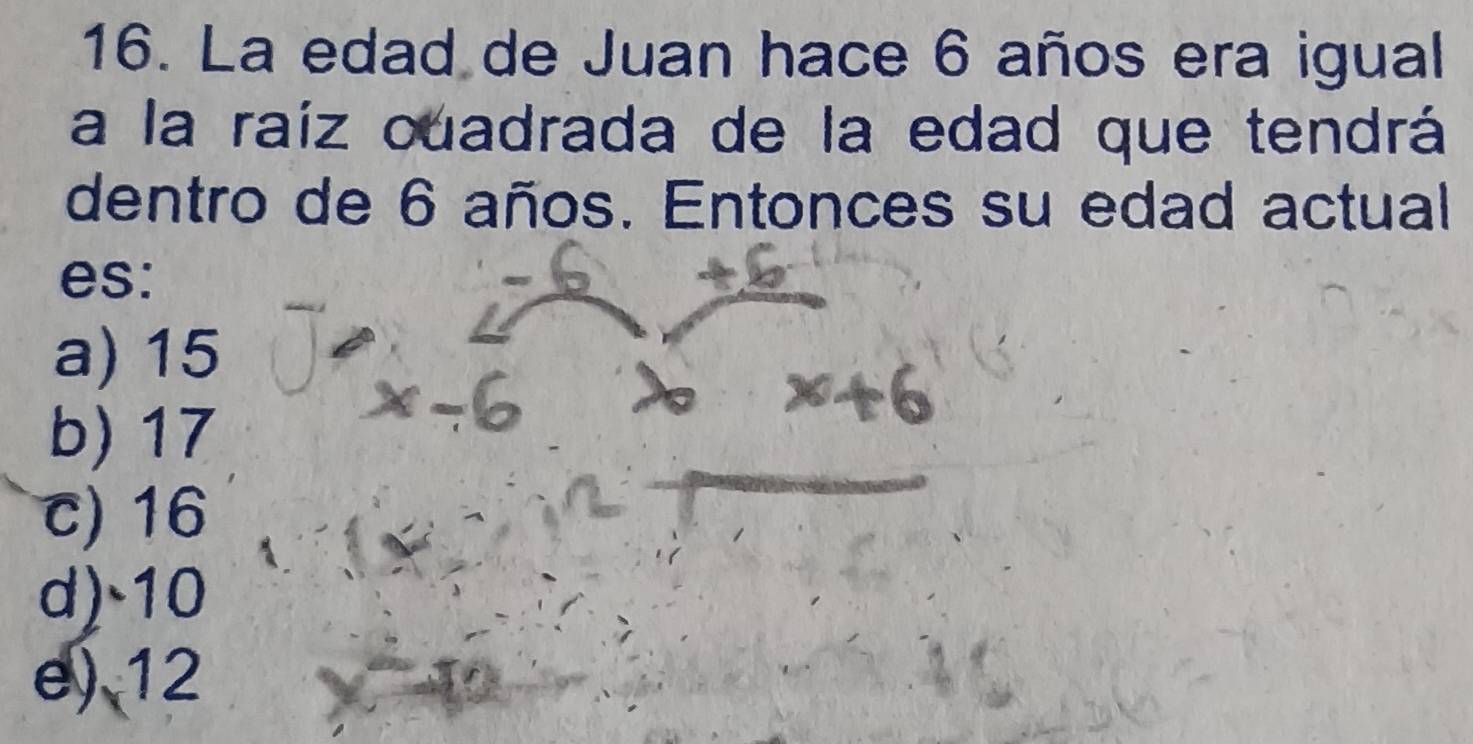 16. La edad de Juan hace 6 años era igual
a la raíz cuadrada de la edad que tendrá
dentro de 6 años. Entonces su edad actual
es:
-6 +6
a) 15
J
x-6 x x+6
b) 17
c) 16
d) 10
e) 12